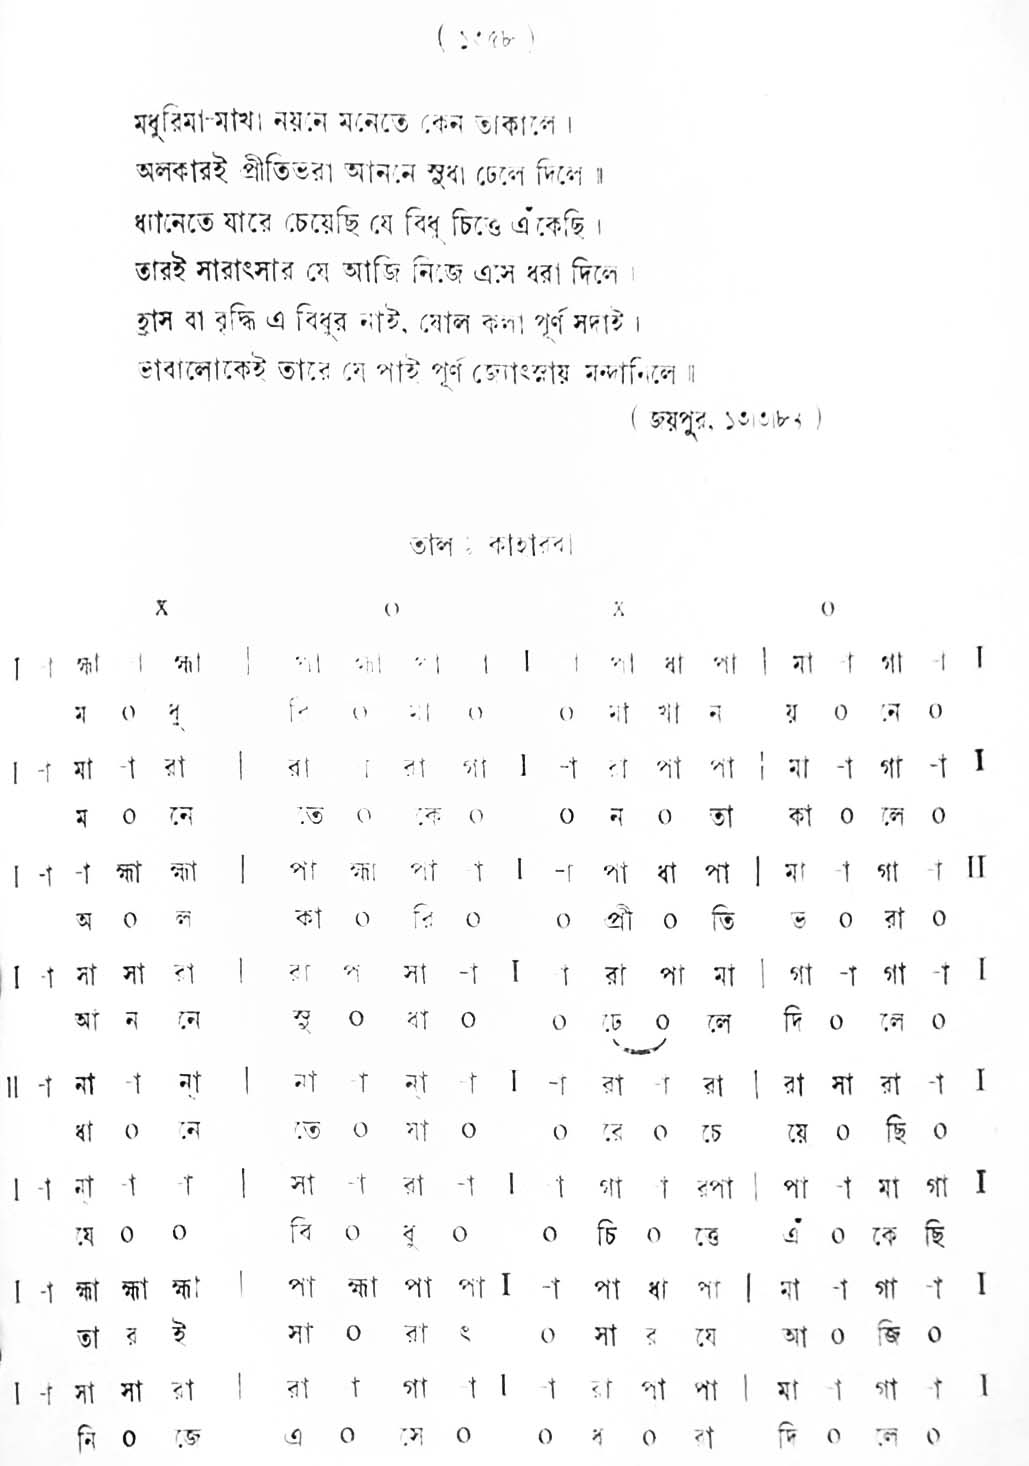 ( ১৩৫৮ )
মধুরিমা-মাখা নয়নে মনেতে কেন তাকালে ।
অলকারই প্রীতিভরা আননে সুধা ঢেলে দিলে ॥
ধ্যানেতে যারে চেয়েছি যে বিধু চিত্তে এঁকেছি ।
তারই সারাৎসার যে আজি নিজে এসে ধরা দিলে ।
হ্রাস বা বৃদ্ধি এ বিধুর নাই, ষোল কলা পূর্ণ সদাই ।
ভাবালোকেই তারে যে পাই পূর্ণ জ্যোৎস্নায় মন্দানিলে ॥
( জয়পুর, ১৩।৩।৮২ )
তাল : কাহারবা
X ০ X ০
I -া হ্মা -া হ্মা | পা হ্মা পা -া I -া পা ধা পা | মা -া গা -া I
ম ০ ধু রি ০ মা ০ ০ মা খা ন য় ০ নে ০
I -া মা -া রা | রা -া রা গা I -া রা পা পা | মা -া গা -া I
ম ০ নে তে ০ কে ০ ০ ন ০ তা কা ০ লে ০
I -া -া হ্মা হ্মা | পা হ্মা পা -া I -া পা ধা পা | মা -া গা -া II
অ ০ ল কা ০ রি ০ ০ প্রী ০ তি ভ ০ রা ০
I -া সা সা রা | রা প সা -া I -া রা পা মা | গা -া গা -া I
আ ন নে সু ০ ধা ০ ০ ঢে ০ লে দি ০ লে ০
II -া না -া ন্া | না -া ন্া -া I -া রা -া রা | রা সা রা -া I
ধা ০ নে তে ০ যা ০ ০ রে ০ চে য়ে ০ ছি ০
I -া ন্া -া -া | সা -া রা -া I -া গা -া রপা | পা -া মা গা I
যে ০ ০ বি ০ ধু ০ ০ চি ০ ত্তে এঁ ০ কে ছি
I -া হ্মা হ্মা হ্মা | পা হ্মা পা পা I -া পা ধা পা | মা -া গা -া I
তা র ই সা ০ রা ৎ ০ সা র যে আ ০ জি ০
I -া সা সা রা | রা -া গা -া I -া রা পা পা | মা -া গা -া I
নি ০ জে এ ০ সে ০ ০ ধ ০ রা দি ০ লে ০